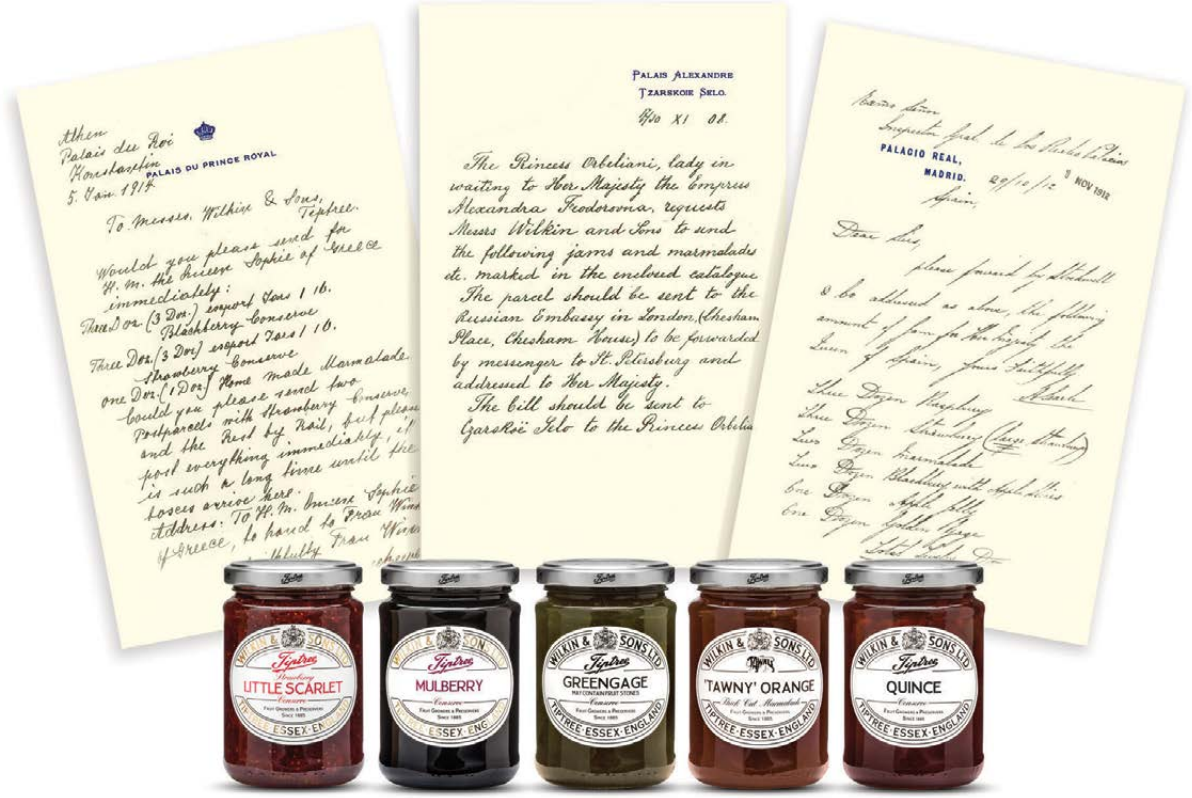 Athen
Palais du Roi
Konstantin
5. Jan. 1914
PALAIS DU PRINCE ROYAL
To Messrs. Wilkin & Sons,
Tiptree.
Would you please send for
H. M. the Queen Sophie of Greece
immediately:
Three Doz (3 Doz.) export Jars 1 lb.
Blackberry Conserve
Three Doz. (3 Doz) export Jars 1 lb.
Strawberry Conserve
one Doz. (1 Doz) Home made Marmalade
Could you please send two
Postparcels with Strawberry Conserve
and the Rest by Rail, but please
post everything immediately, it
is such a long time until the
boxes arrive here.
Address: To H. M. Queen Sophie
of Greece, to hand to Frau
Frau
PALAIS ALEXANDRE
TZARSKOIE SELO.
XI 08.
The Princess Orbeliani, lady in
waiting to Her Majesty the Empress
Alexandra Feodorovna, requests
Messrs Wilkin and Sons to send
the following jams and marmalades
etc. marked in the enclosed catalogue
The parcel should be sent to the
Russian Embassy in London, (Chesham
Place, Chesham House) to be forwarded
by messenger to St. Petersburg and
addressed to Her Majesty.
The bill should be sent to
Czarskoë Selo to the Princess Orbelia
PALACIO REAL,
MADRID.
29/10/12
NOV 1912
Spain,
Dear Sirs,
please forward by
& be addressed as above, the following
amount of jam for Her Majesty the
Queen of Spain, yours faithfully
Three Dozen Raspberry
Three Dozen Strawberry (large Strawberry)
Two Dozen marmalade
Two Dozen Blackberry with Apple
One Dozen Apple jelly
One Dozen Golden
Total
Tiptree
Tiptree
Tiptree
Tiptree
Tiptree
WILKIN & SONS LTD
Tiptree
Strawberry
LITTLE SCARLET
Conserve
FRUIT GROWERS & PRESERVERS
SINCE 1885
TIPTREE·ESSEX·ENGLAND
WILKIN & SONS LTD
Tiptree
MULBERRY
Conserve
FRUIT GROWERS & PRESERVERS
SINCE 1885
TIPTREE·ESSEX·ENGLAND
WILKIN & SONS LTD
Tiptree
GREENGAGE
MAY CONTAIN FRUIT STONES
Conserve
FRUIT GROWERS & PRESERVERS
SINCE 1885
TIPTREE·ESSEX·ENGLAND
WILKIN & SONS LTD
Tawny
'TAWNY' ORANGE
Thick Cut Marmalade
FRUIT GROWERS & PRESERVERS
SINCE 1885
TIPTREE·ESSEX·ENGLAND
WILKIN & SONS LTD
Tiptree
QUINCE
Conserve
FRUIT GROWERS & PRESERVERS
SINCE 1885
TIPTREE·ESSEX·ENGLAND